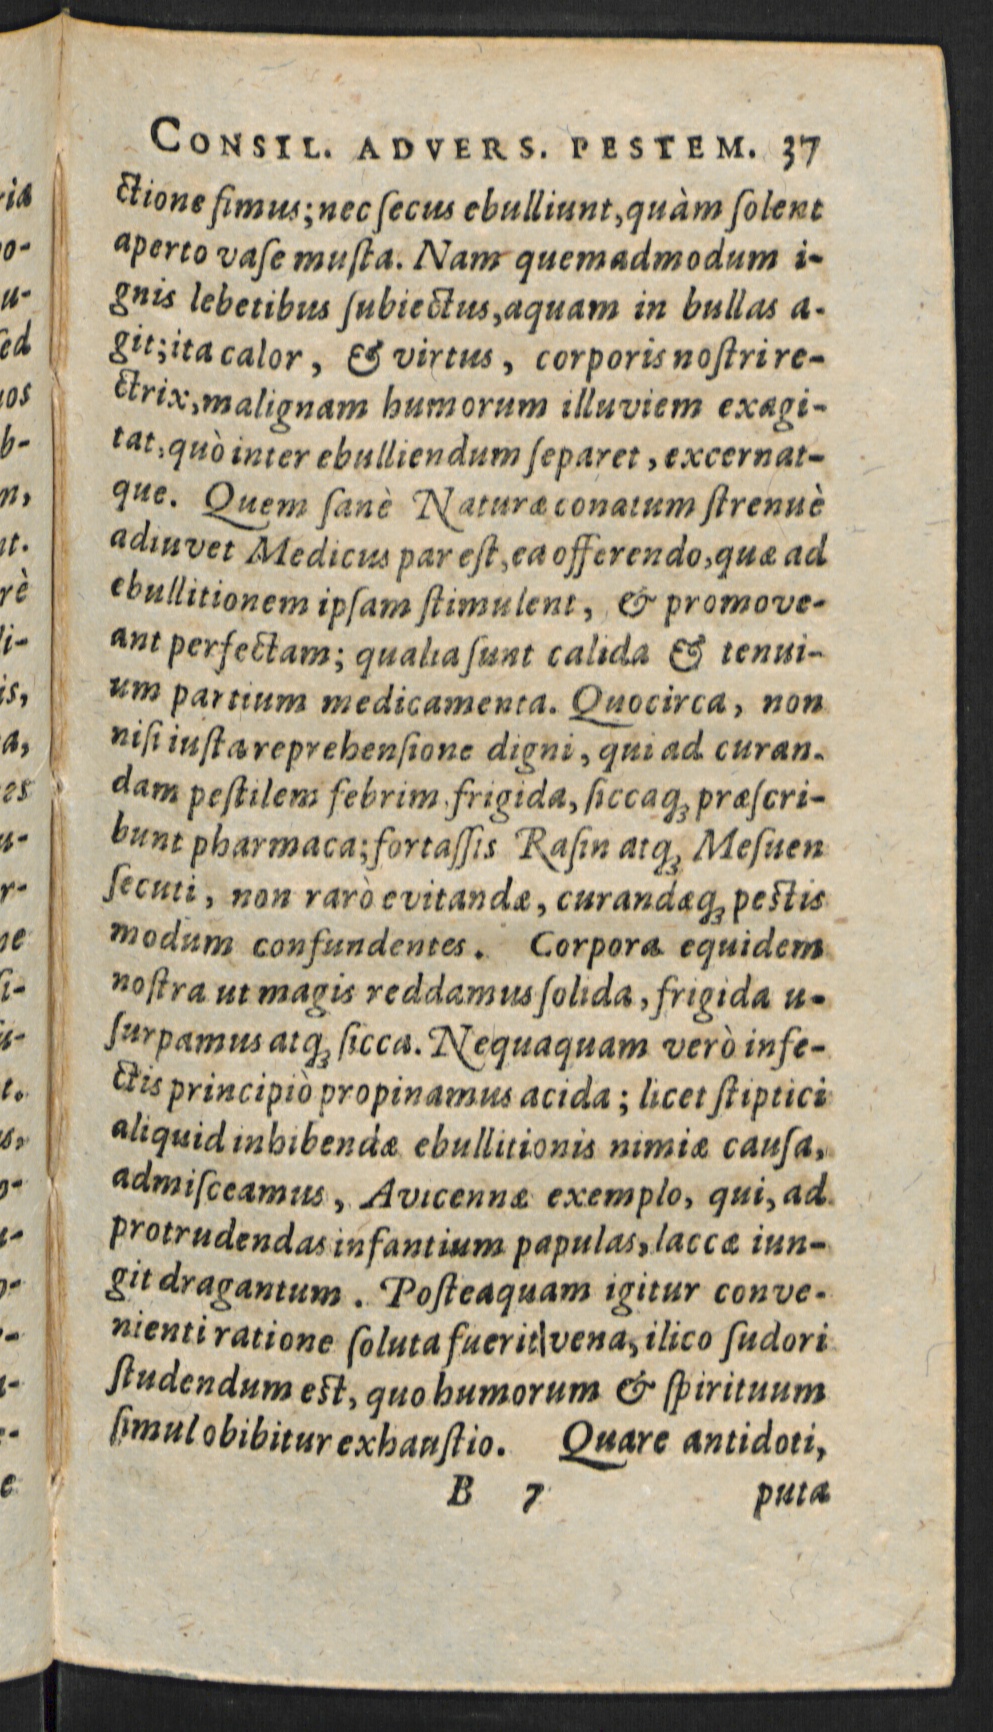 CONSIL. ADVERS. PESTEM. 37
ctione ſimus; nec ſecus ebulliunt, quàm ſolent
aperto vaſe muſta. Nam quemadmodum i-
gnis lebetibus ſubiectus, aquam in bullas a-
git; ita calor, & virtus, corporis noſtri re-
ctrix, malignam humorum illuviem exagi-
tat, quò inter ebulliendum ſeparet, excernat-
que. Quem ſanè Naturæ conatum ſtrenuè
adiuvet Medicus par eſt, ea offerendo, quæ ad
ebullitionem ipſam ſtimulent, & promove-
ant perfectam; qualia ſunt calida & tenui-
um partium medicamenta. Quocirca, non
niſi iuſta reprehenſione digni, qui ad curan-
dam peſtilem febrim frigida, ſiccaq; præſcri-
bunt pharmaca; fortaſſis Raſin atq; Meſuen
ſecuti, non rarò evitandæ, curandæq; peſtis
modum confundentes. Corpora equidem
noſtra ut magis reddamus ſolida, frigida u-
ſurpamus atq; ſicca. Nequaquam verò infe-
ctis principiò propinamus acida; licet ſtiptici
aliquid inhibendæ ebullitionis nimiæ cauſa,
admiſceamus, Avicennæ exemplo, qui, ad
protrudendas infantium papulas, laccæ iun-
git dragantum. Poſteaquam igitur conve-
nienti ratione ſoluta fuerit vena, ilico ſudori
ſtudendum eſt, quo humorum & ſpirituum
ſimul obibitur exhauſtio. Quare antidoti,
B 7 puta